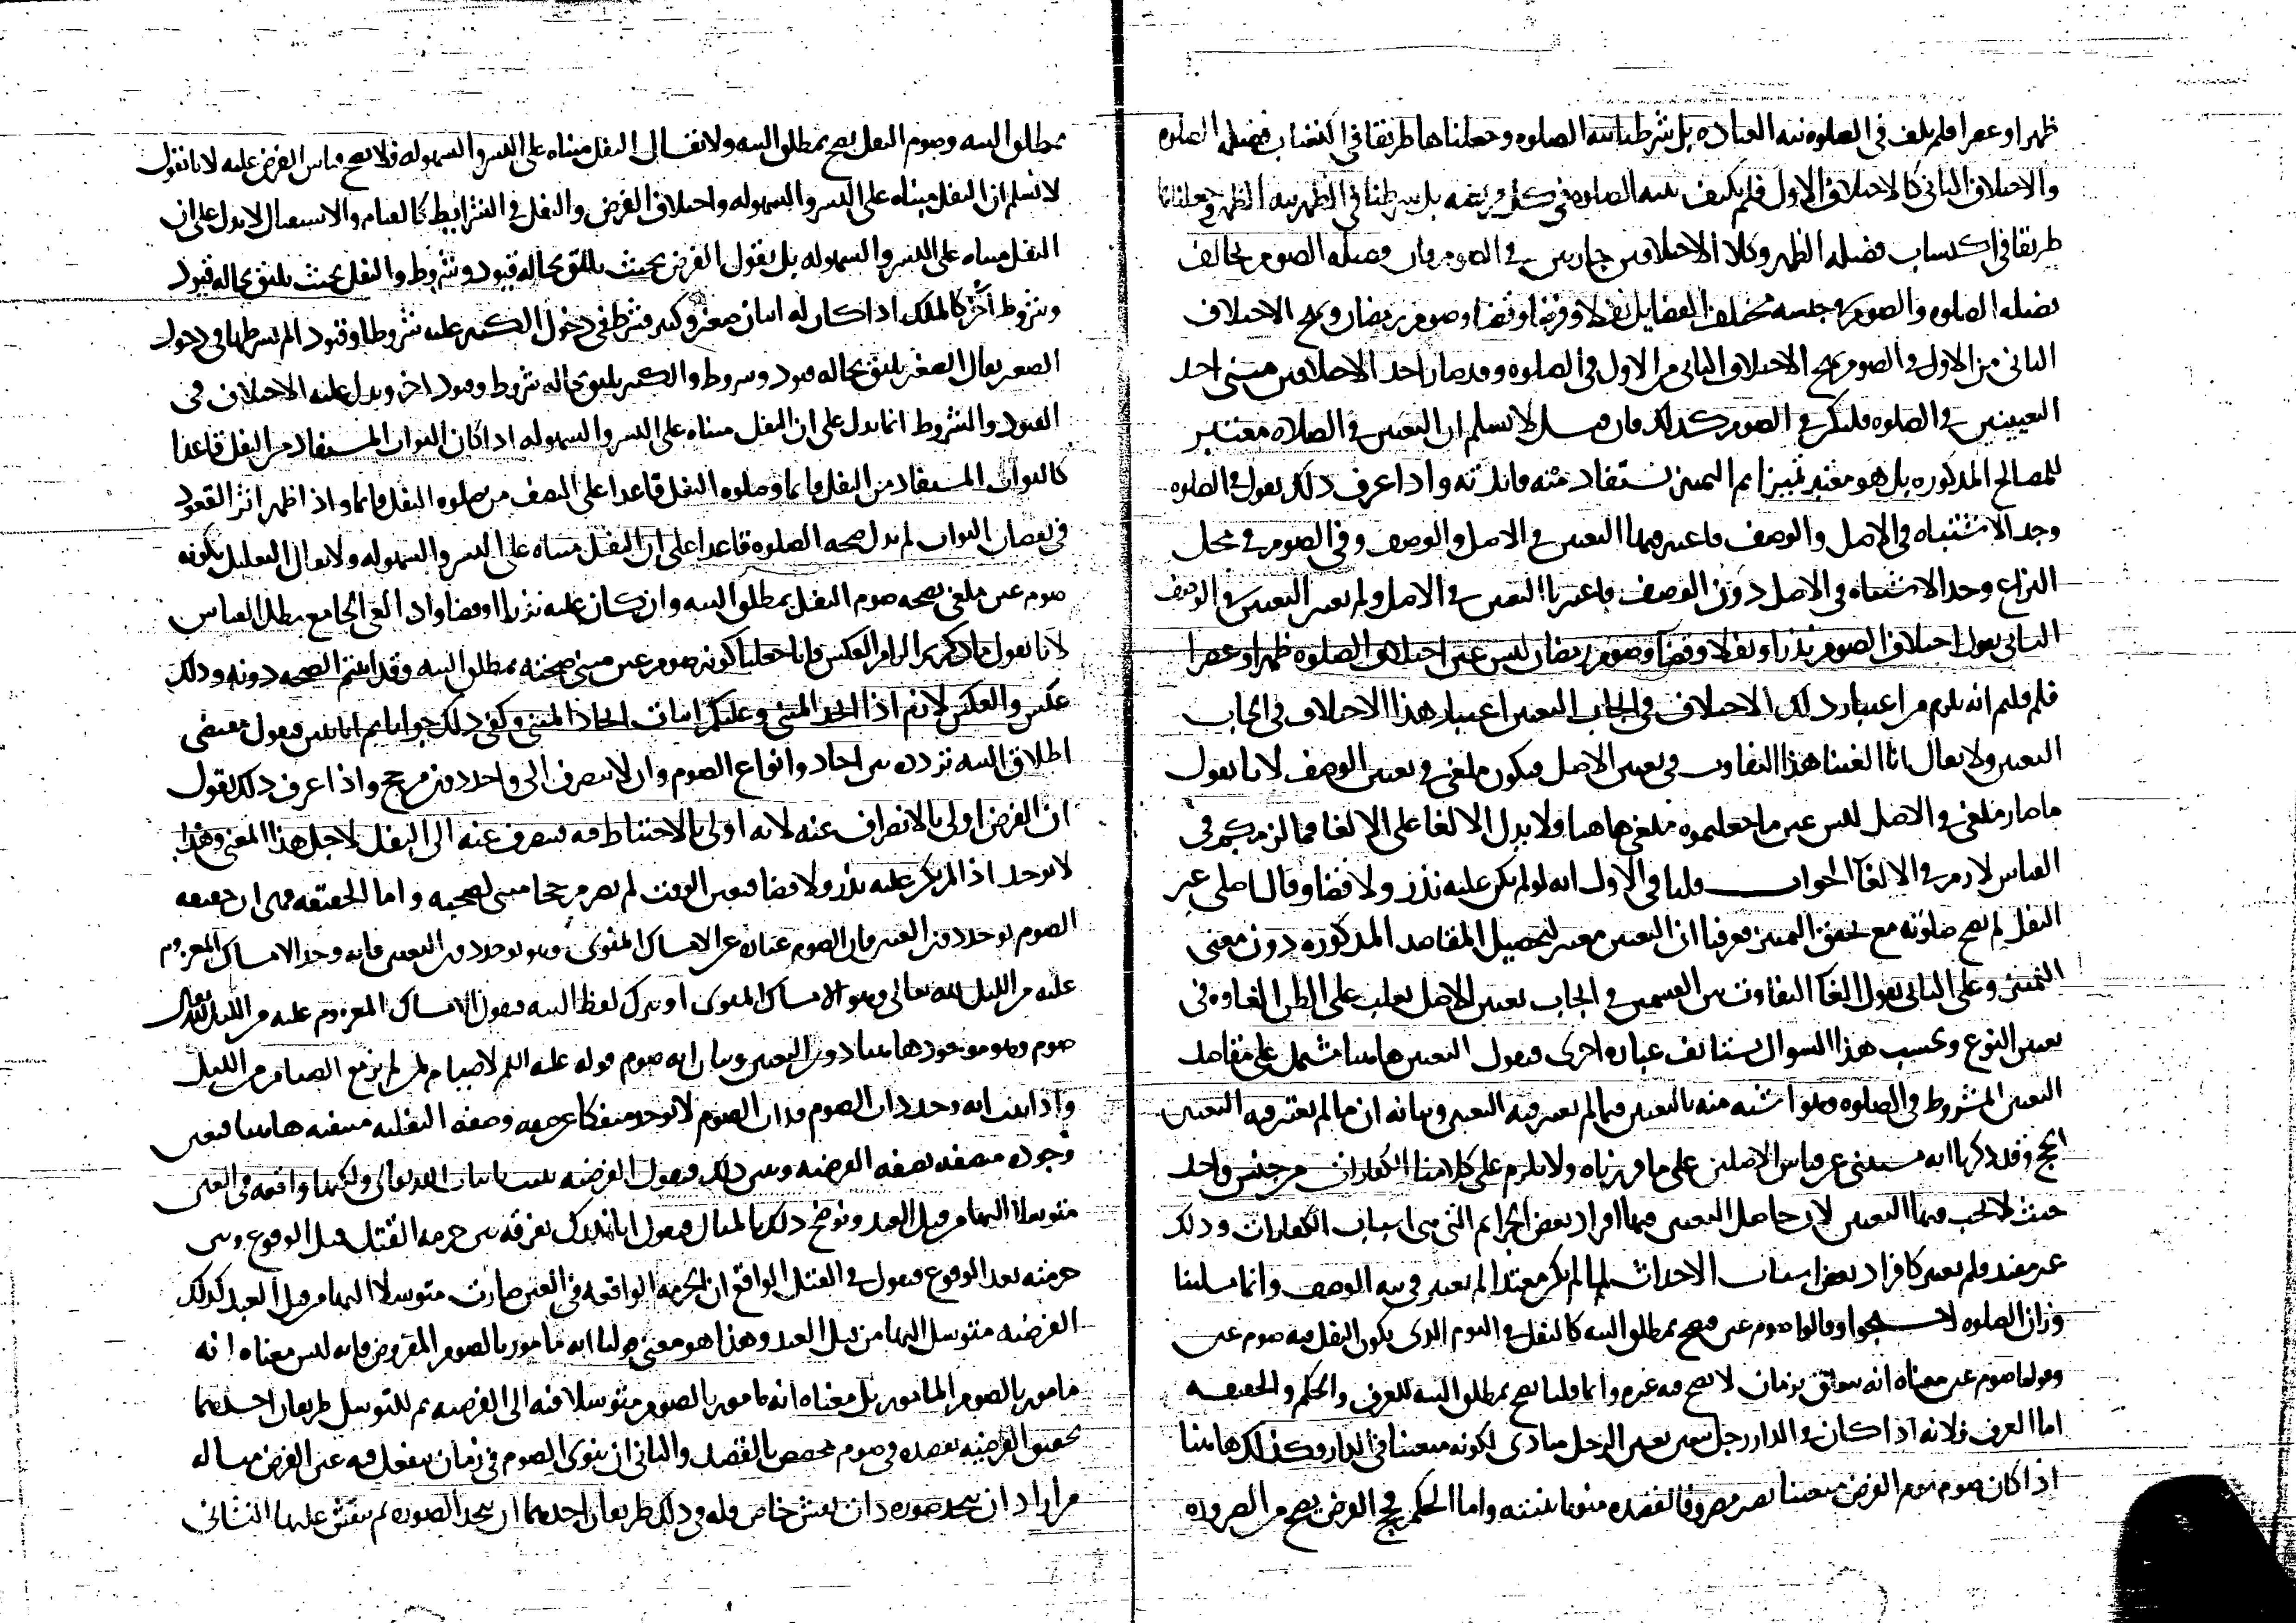 ظهرا وعصرا فلم يكف في الصلوه نيه العباده بل شرطنا نيه الصلوه وجعلناها طريقا في اكتساب فضيله الصلوه
والاختلاف الثاني كالاختلاف الاول فلم يكتف بنيه الصلوه في كل فريضه بل شرطنا في الظهر نيه الظهر وجعلناها
طريقا في اكتساب فضيله الظهر وكلا الاختلافين جاريين في الصوم فان فضيله الصوم تخالف
فضيله الصلوه والصوم في جنسه مختلف الفضايل نفلا وفرضا وقضا وصوم رمضان وبح الاختلاف
الثاني من الاول في الصوم بح الاختلاف الثاني من الاول في الصلوه وقد صار احد الاختلافين مبنى احد
التعيينين في الصلوه فليكن في الصوم كذلك فان قيل لا نسلم ان التعيين في الصلاه معتبر
للمصالح المذكوره بل هو معتبر تمييزا ثم التمييز تستفاد منه فائدته واذا عرف ذلك نقول في الصلوه
وجد الاشتباه في الاصل والوصف فاعتبر فيها التعيين في الاصل والوصف وفي الصوم في محل
النزاع وجد الاشتباه في الاصل دون الوصف فاعتبرنا التعيين في الاصل ولم نعتبر التعيين في الوصف
الثاني نقول اختلاف الصوم نذرا ونفلا وقضا وصوم رمضان ليس عين اختلاف الصلوه ظهرا وعصرا
فلم قلتم انه يلزم من اعتبار ذلك الاختلاف في ايجاب التعيين اعتبار هذا الاختلاف في ايجاب
التعيين ولا يقال انا الغينا هذا التفاوت في تعيين الاصل فيكون ملغى في تعيين الوصف لانا نقول
ما صار ملغى في الاصل ليس عين ما جعلتموه ملغى هاهنا ولا يدل الالغا على الالغا فما لزمكم في
القياس لازم في الالغا الجواب قلنا في الاول انه لو لم يكن عليه نذر ولا قضا وقال اصلي غير
النفل لم تصح صلوته مع تحقق التمييز فعرفنا ان التعيين معتبر لتحصيل المقاصد المذكوره دون معنى
التمييز وعلى الثاني نقول الغا التفاوت بين القسمين في ايجاب تعيين الاصل يغلب على الظن الغاوه في
تعيين النوع وبحسب هذا السوال نستانف عباره اخرى فنقول التعيين هاهنا مشتمل على مقاصد
التعيين المشروط في الصلوه وهو اشبه منه بالتعيين فيما لم يعتبر فيه التعيين وبيانه ان ما لم يعتبر فيه التعيين
الحج وقد ذكرنا انه مستثنى عن قياس الاصلين على ما قررناه ولا يلزم على كلامنا الكفارات من جنس واحد
حيث لا يجب فيها التعيين لان حاصل التعيين فيها افراد بعض الجرايم التي هي اسباب الكفارات وذلك
غير مفيد فلم يعتبر كافراد بعض اسباب الاحداث فلما لم يكن معتدا لم يعتبر في نيه الوصف وانما مسلتنا
وزان الصلوه احتجوا وقالوا صوم عين فيصح بمطلق النيه كالنفل في اليوم الذي يكون النفل فيه صوم عين
وقولنا صوم عين معناه انه متعلق بزمان لا يصح فيه غيره وانما قلنا يصح بمطلق النيه للعرف والحكم والحقيقه
اما العرف فلانه اذا كان في الدار رجل معين تعين الرجل منادى لكونه متعينا في الدار وكذلك هاهنا
اذا كان صوم يوم الفرض متعينا يصير مصروفا لقصده منويا بنيته واما الحكم في حج الفرض يصح من الصروره
بمطلق النيه وصوم النفل يصح بمطلق النيه ولا يقال النفل مبناه على اليسر والسهوله فلا يصح قياس الفرض عليه لانا نقول
لا نسلم ان النفل مبناه على اليسر والسهوله واختلاف الفرض والنفل في الشرايط كالقيام والاستقبال لا يدل على ان
النفل مبناه على اليسر والسهوله بل نقول الفرض بحيث يليق بحاله قيود وشروط والنفل بحيث يليق بحاله قيود
وشروط اخر كالملك اذا كان له ابنان صغير وكبير فشرط في دخول الكبير عليه شروطا وقيودا لم يشرطها في دخول
الصغير يقال الصغير يليق بحاله قيود وشروط والكبير يليق بحاله شروط وقيود اخر ويدل عليه الاختلاف في
القيود والشروط انما يدل على ان النفل مبناه على اليسر والسهوله اذا كان الثواب المستفاد من النفل قاعدا
كالثواب المستفاد من النفل قايما وصلوه النفل قاعدا على النصف من صلوه النفل قايما واذ اظهر اثر القعود
في نقصان الثواب لم يدل صحه الصلوه قاعدا على ان النفل مبناه على اليسر والسهوله ولا يقال التعليل بكونه
صوم عين ملغى بصحه صوم النفل بمطلق النيه وان كان عليه نذرا او قضا واذا الغي الجامع بطل القياس
لانا نقول ما ذكرتم الزام العكس فانا جعلنا كونه صوم عين مبنى صحته بمطلق النيه وقد اثبتم الصحه دونه وذلك
عكس والعكس لازم اذا اتحد المبنى وعليكم اثبات اتحاد المبنى وكفى ذلك جوابا ثم انا نبين فنقول مقتضى
اطلاق النيه تردده بين احاد وانواع الصوم وان لا ينصرف الى واحد دون مرجح واذا عرف ذلك نقول
ان الفرض اولى بالانصراف عنه لانه اولى بالاحتياط فيه فينصرف عنه الى النفل لاجل هذا المعنى وهذا
لا يوجد اذا لم يكن عليه نذر ولا قضا فتعين الوقت لم يصر مرجحا مبنى لصحته واما الحقيقه فهي ان حقيقه
الصوم توجد دون التعيين فان الصوم عباره عن الامساك المنوى وهو يوجد دون التعيين فانه وجد الامساك المعزوم
عليه من الليل لله تعالى وهو الامساك المنوى او نترك لفظ النيه فنقول الامساك المعزوم عليه من الليل لله تعالى
صوم وهو موجود هاهنا دون التعيين وبيان انه صوم قوله عليه السلم لا صيام لمن لم يزمع الصيام من الليل
واذا ثبت انه وجد ذات الصوم فذات الصوم لا توجد منفكا عن صفه وصفه النفليه منتفيه هاهنا فتعين
وجوده متصفه بصفه الفرضيه ونبين ذلك فنقول الفرضيه تثبت باثبات الله تعالى ولكنها واقعه في العين
متوسلا اليها من قبل العبد ونوضح ذلك بالمثال فنقول انا ندرك تفرقه بين حرمه القتل قبل الوقوع وبين
حرمته بعد الوقوع فنقول في القتل الواقع ان الحرمه الواقعه في العين صارت متوسلا اليها من قبل العبد كذلك
الفرضيه متوسل اليها من قبل العبد وهذا هو معنى قولنا انه مامور بالصوم المفروض فانه ليس معناه انه
مامور بالصوم المامور بل معناه انه مامور بالصوم متوسلا فيه الى الفرضيه ثم للتوسل طريقان احدهما
تحقيق الفرضيه بقصده في صوم مخصص بالقصد والثاني ان ينوى الصوم في زمان ينفعل فيه عين الفرض مثاله
من اراد ان يتخذ صوره دان نقش خاص فله في ذلك طريقان احدهما ان يتخذ الصوره ثم ينقش عليها الثاني